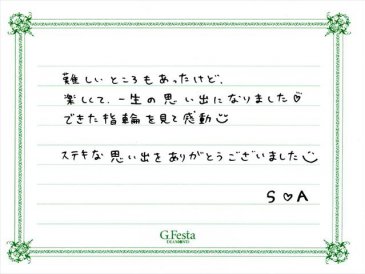 難しいところもあったけど、
楽しくて、一生の思い出になりました♡
できた指輪を見て感動☺
ステキな思い出をありがとうございました☺
S♡A
G.Festa
DIAMOND